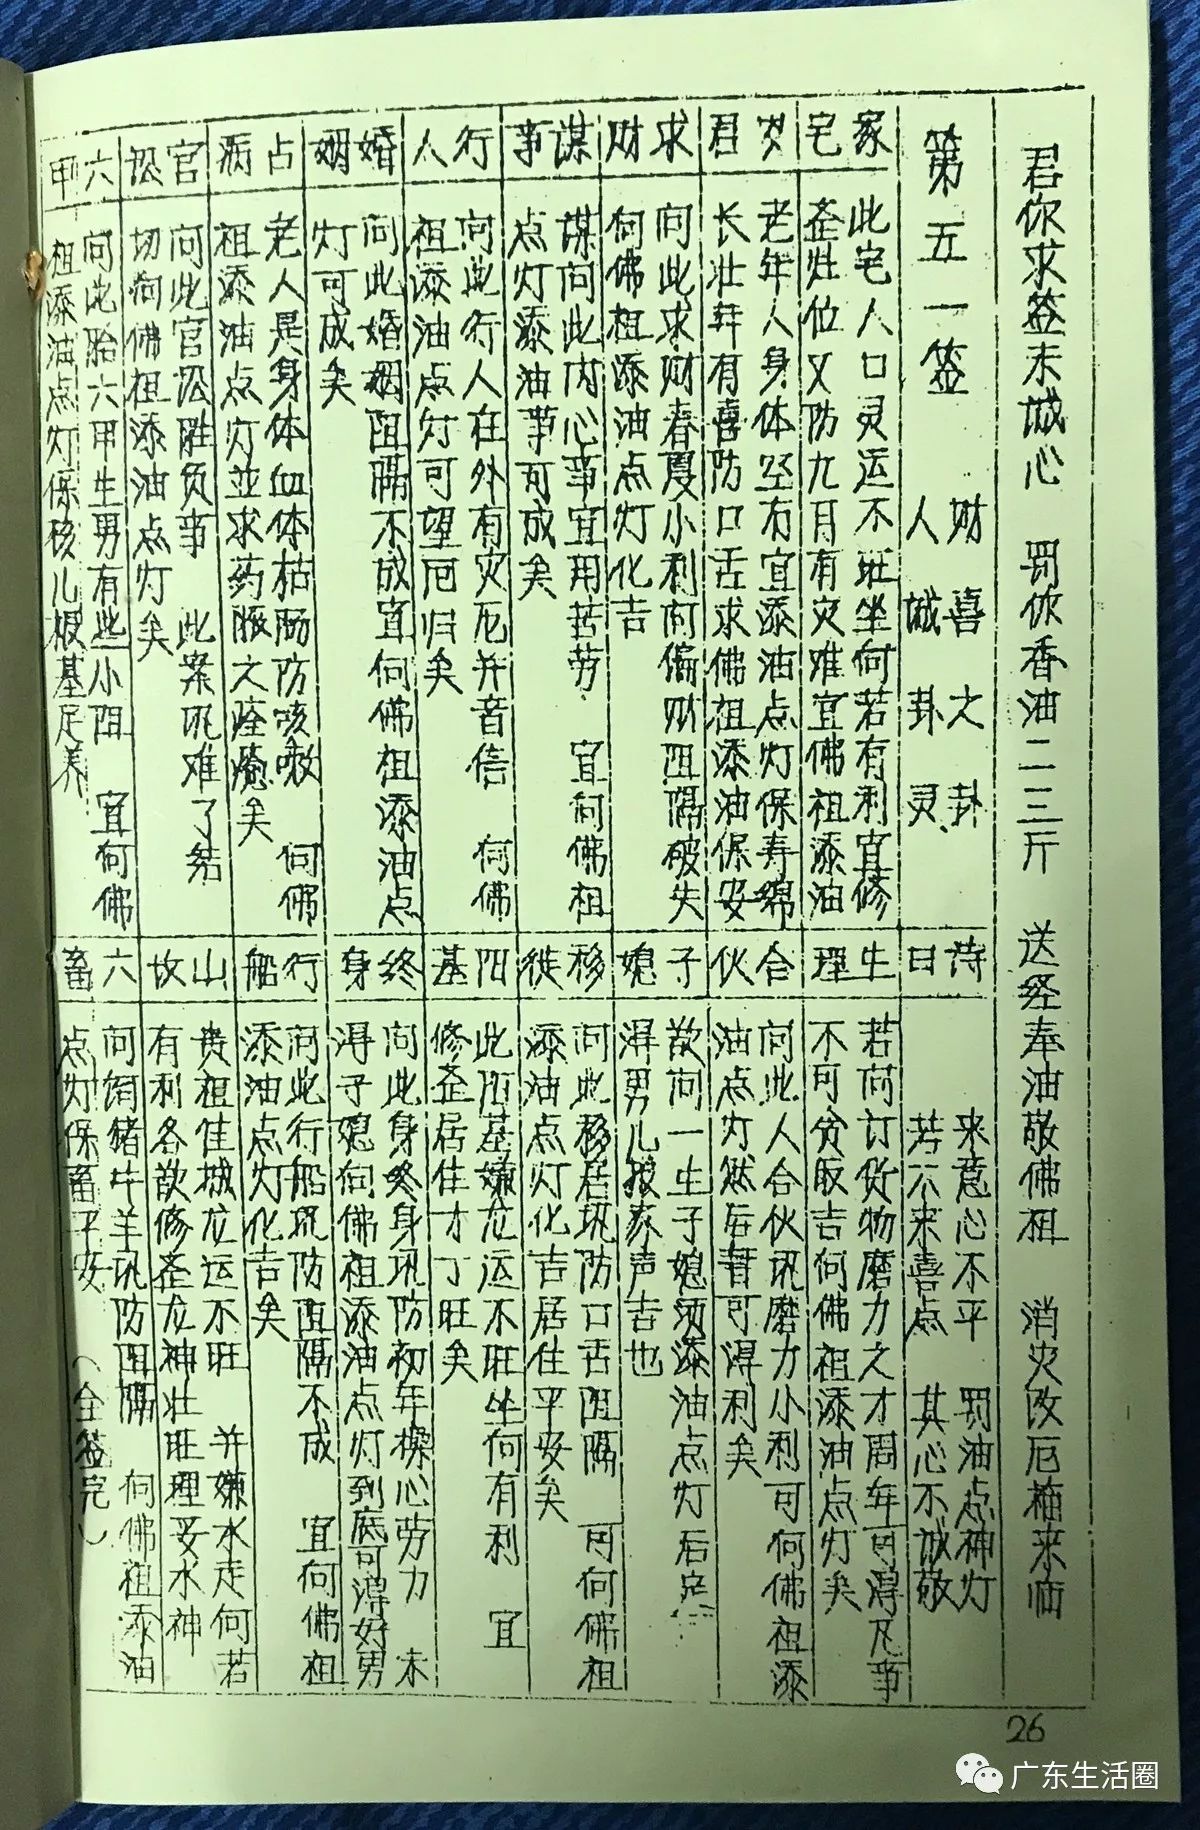 君你求签未诚心　罚你香油二三斤　送经奉油敬佛祖　消灾改厄梅来临
第五一签
财喜之卦
人诚卦灵
诗曰
来意心不平　罚油点神灯
若不来喜点　其心不诚敬
家宅
此宅人口灵运不旺坐向若有利宜修
圣灶位又防九月有灾难宜佛祖添油
岁君
老年人身体坚布宜添油点灯保寿绵
长壮年有喜防口舌求佛祖添油保安
求财
问此求财春夏小利向偏财阻隔破失
向佛祖添油点灯化吉
谋事
谋问此内心事宜用苦劳　宜向佛祖
点灯添油事可成矣
行人
问此行人在外有灾厄并音信　向佛
祖添油点灯可望回归矣
婚姻
问此婚姻阻隔不成宜向佛祖添油点
灯可成矣
占病
老人是身体血体枯肠防咳嗽　向佛
祖添油点灯並求药服之痊癒矣
官讼
问此官讼胜负事　此案讯难了结
切向佛祖添油点灯矣
六甲
问此胎六甲生男有些小阻　宜向佛
祖添油点灯保孩儿根基足养
生理
若问订货物磨力之才周年可得凡事
不可贪取吉向佛祖添油点灯矣
合伙
问此人合伙讯磨力小利可向佛祖添
油点灯然后督可得利矣
子媳
欲问一生子媳须添油点灯后
得男儿接家声吉也
移徙
问此移居讯防口舌阻隔　可向佛祖
添油点灯化吉居住平安矣
阳基
此阳基嫌龙运不旺坐向有利　宜
修圣居住才丁旺矣
终身
问此身终身讯防初年操心劳力　未
得子媳向佛祖添油点灯到底可得好男
行船
问此行船讯防阻隔不成　宜向佛祖
添油点灯化吉矣
山坟
贵祖佳城龙运不旺　并嫌水走向若
有利各欲修圣龙神壮旺理妥水神
六畜
问饲猪牛羊讯防阻隔　向佛祖添油
点灯保畜子安　（全签完）
26
广东生活圈